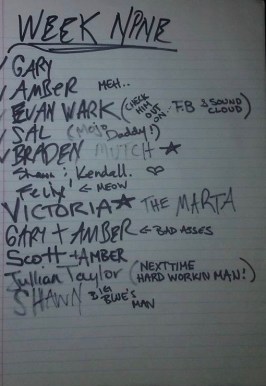 WEEK NINE
✓ GARY
✓ AMBER MEH..
✓ EVAN WARK (CHECK HIM OUT ON.. FB & SOUND CLOUD)
✓ SAL (Mojo Daddy!)
✓ BRADEN MUTCH ★
Shawn & Kendall. ♡
Felix! ← MEOW
VICTORIA ★ THE MARTA
GARY + AMBER ← BAD ASSES
Scott + AMBER
Jullian Taylor (NEXT TIME HARD WORKIN MAN!)
SHAWN BLUE'S MAN